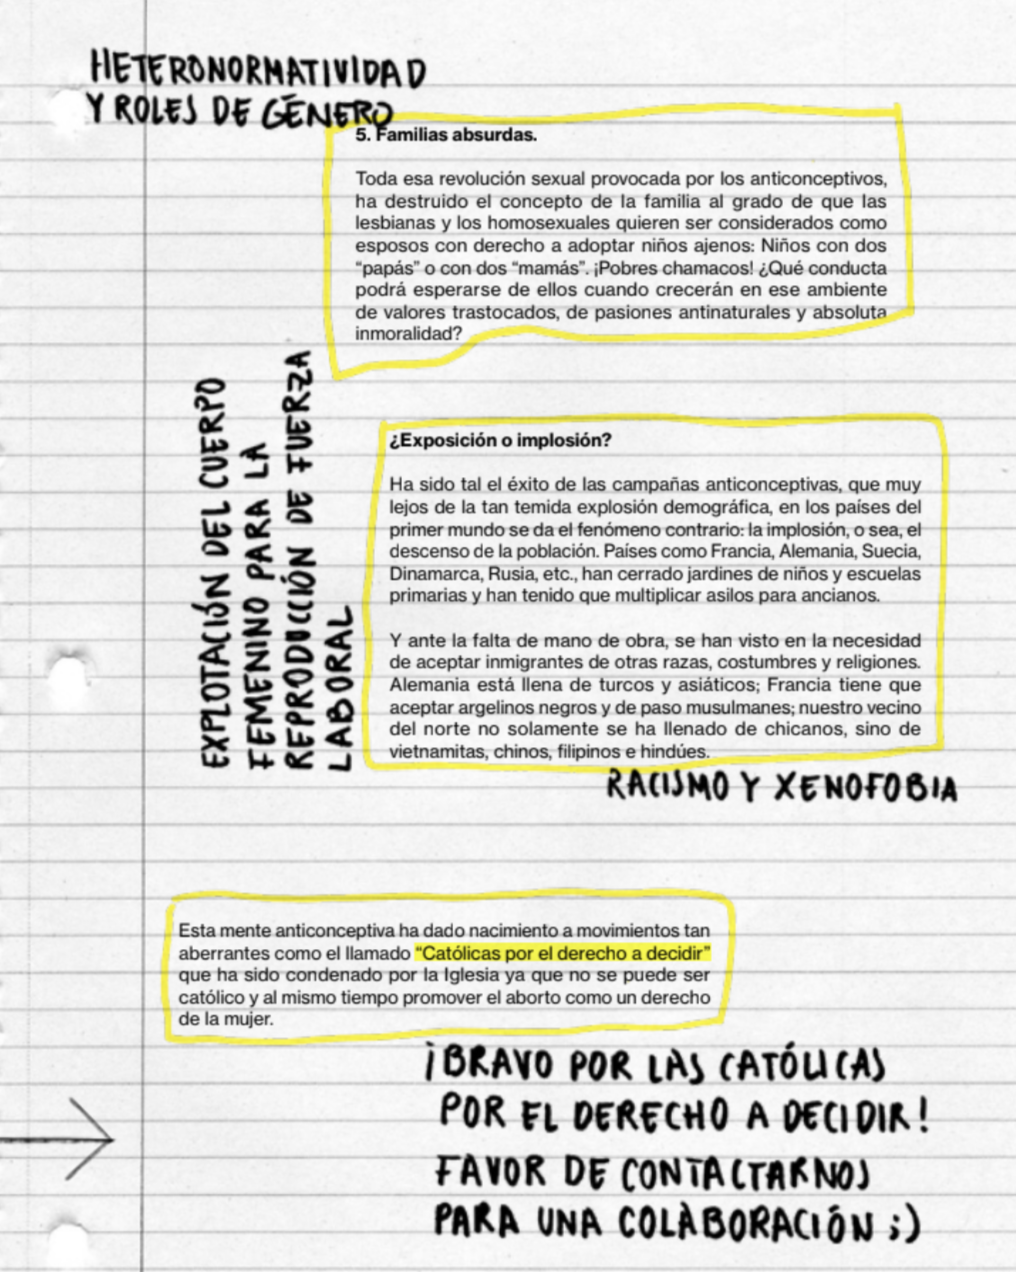 HETERONORMATIVIDAD
Y ROLES DE GÉNERO
5. Familias absurdas.
Toda esa revolución sexual provocada por los anticonceptivos,
ha destruido el concepto de la familia al grado de que las
lesbianas y los homosexuales quieren ser considerados como
esposos con derecho a adoptar niños ajenos: Niños con dos
“papás” o con dos “mamás”. ¡Pobres chamacos! ¿Qué conducta
podrá esperarse de ellos cuando crecerán en ese ambiente
de valores trastocados, de pasiones antinaturales y absoluta
inmoralidad?
EXPLOTACIÓN DEL CUERPO
FEMENINO PARA LA
REPRODUCCIÓN DE FUERZA
LABORAL
¿Exposición o implosión?
Ha sido tal el éxito de las campañas anticonceptivas, que muy
lejos de la tan temida explosión demográfica, en los países del
primer mundo se da el fenómeno contrario: la implosión, o sea, el
descenso de la población. Países como Francia, Alemania, Suecia,
Dinamarca, Rusia, etc., han cerrado jardines de niños y escuelas
primarias y han tenido que multiplicar asilos para ancianos.
Y ante la falta de mano de obra, se han visto en la necesidad
de aceptar inmigrantes de otras razas, costumbres y religiones.
Alemania está llena de turcos y asiáticos; Francia tiene que
aceptar argelinos negros y de paso musulmanes; nuestro vecino
del norte no solamente se ha llenado de chicanos, sino de
vietnamitas, chinos, filipinos e hindúes.
RACISMO Y XENOFOBIA
Esta mente anticonceptiva ha dado nacimiento a movimientos tan
aberrantes como el llamado “Católicas por el derecho a decidir”
que ha sido condenado por la Iglesia ya que no se puede ser
católico y al mismo tiempo promover el aborto como un derecho
de la mujer.
¡BRAVO POR LAS CATÓLICAS
POR EL DERECHO A DECIDIR!
FAVOR DE CONTACTARNOS
PARA UNA COLABORACIÓN ;)